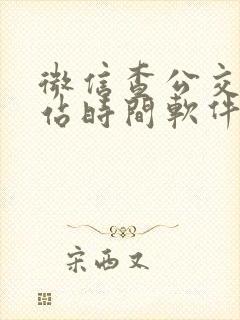 微信查公交
佔時間軟件
宋西又